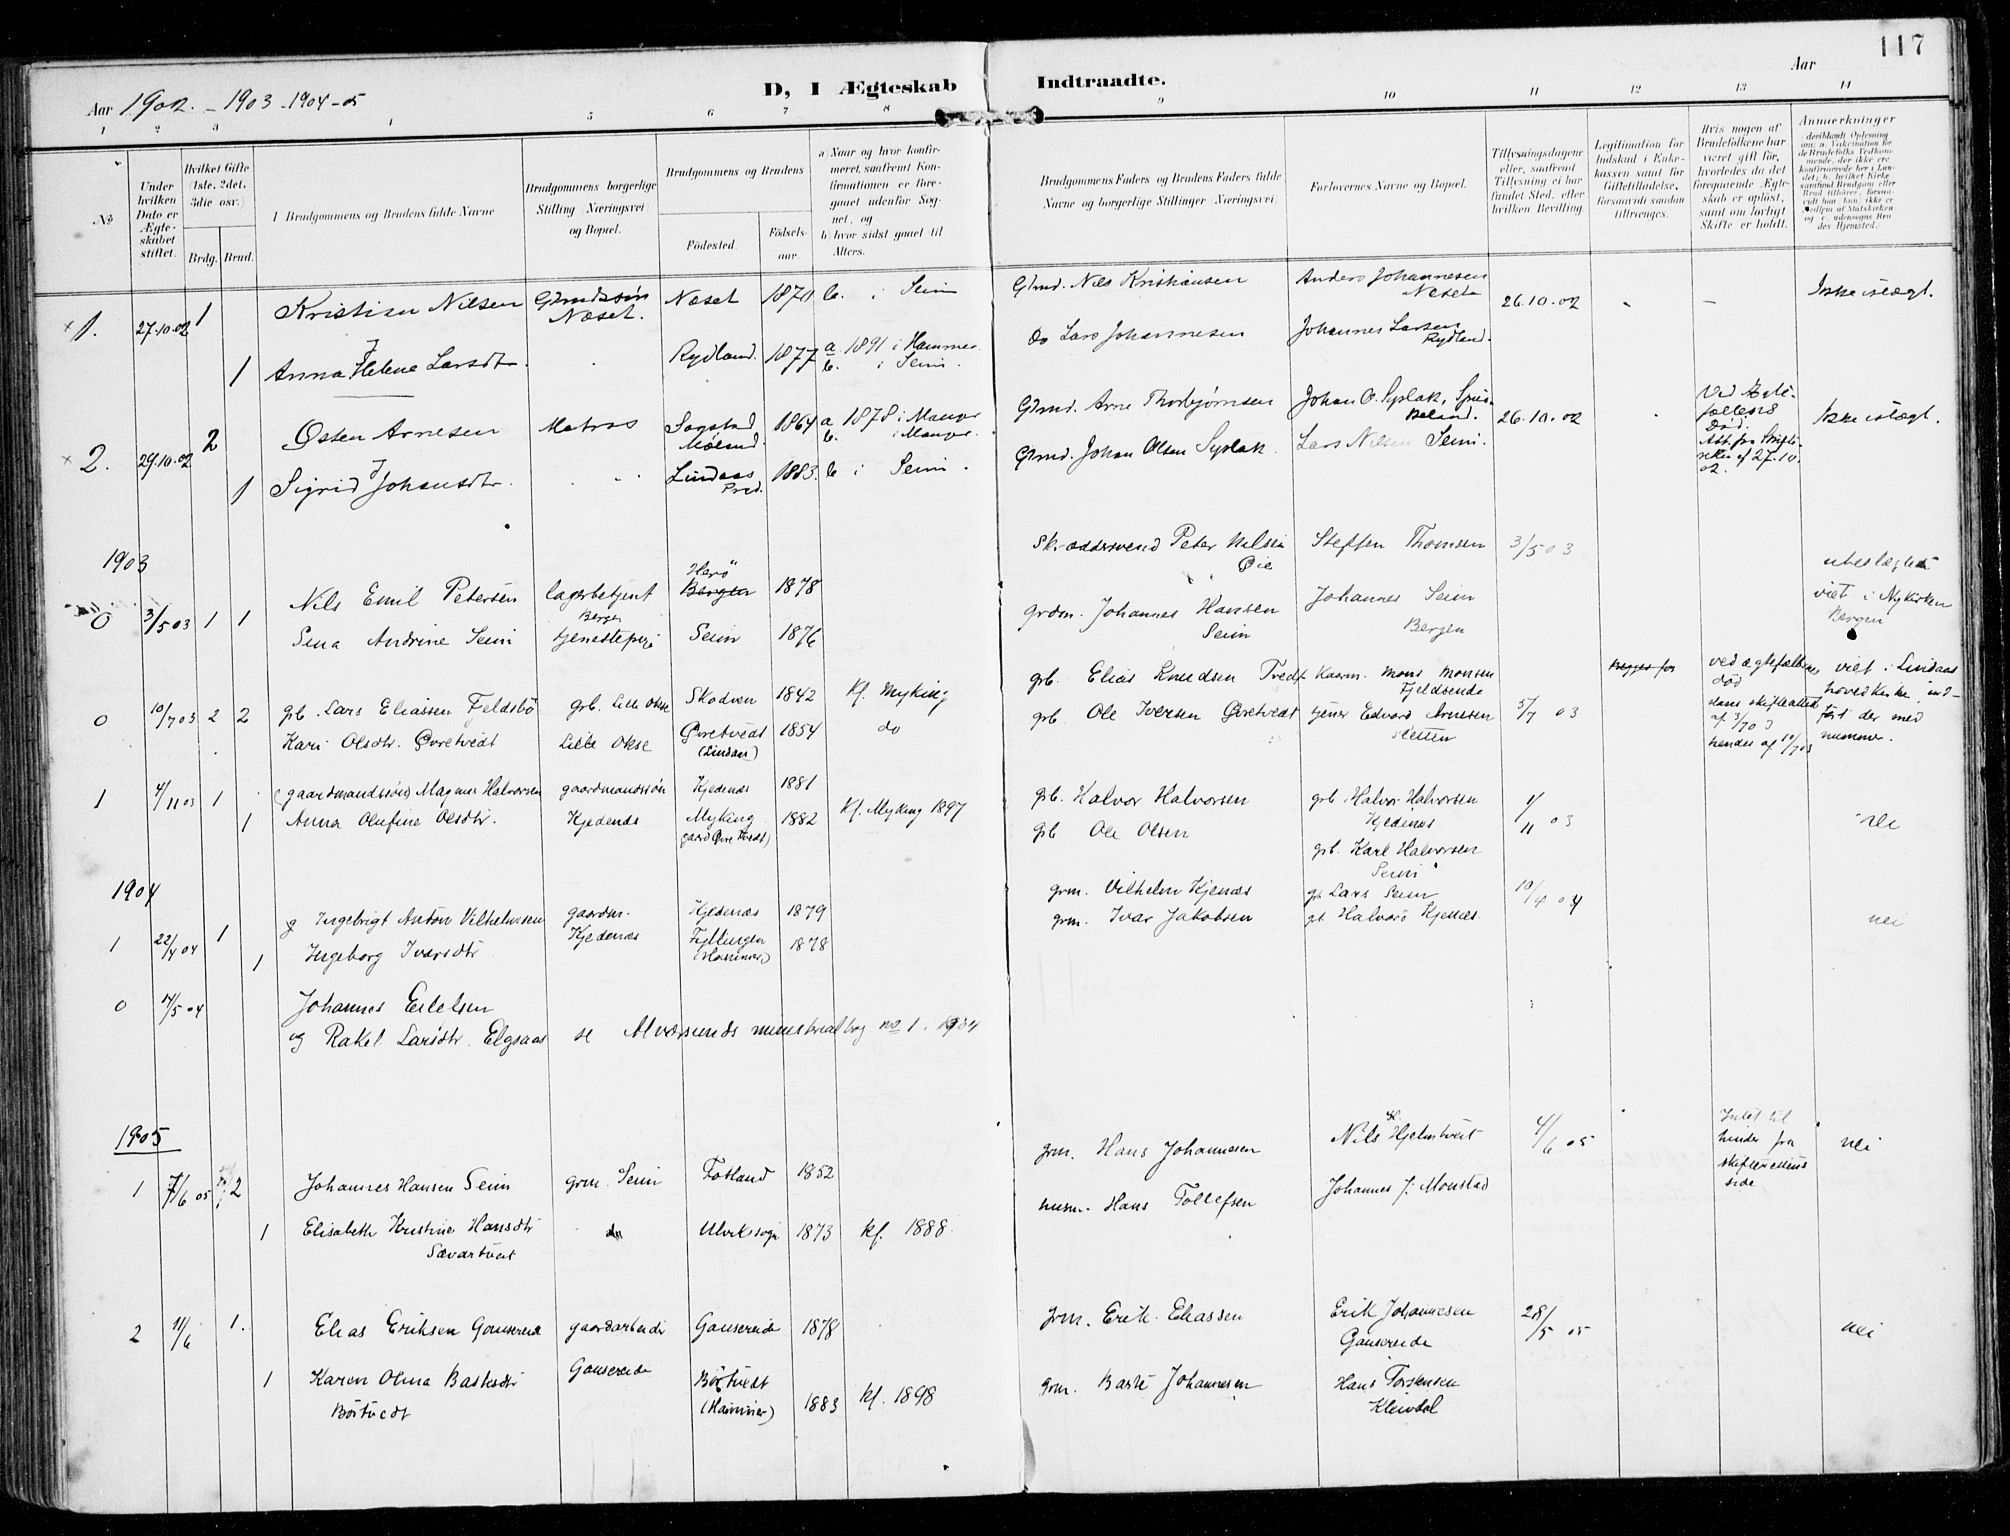 117
Aar 1902. - 1903 - 1904 - 05
D, I Ægteskab Indtraadte.
Aar
1 2 3 4 5 6 7 8 9 10 11 12 13 14
No
Under hvilken Dato er Ægteskabet stiftet.
Hvilket Gifte (1ste, 2det, 3die osv.)
Brdg. Brud.
Brudgommens og Brudens fulde Navne
Brudgommens borgerlige Stilling (Næringsvei) og Bopæl.
Brudgommens og Brudens
Fødested. Fødsels-aar.
a) Naar og hvor konfirmeret, saafremt Konfirmationen er foregaaet udenfor Sognet, og
b) hvor sidst gaaet til Alters.
Brudgommens Faders og Brudens Faders fulde Navne og borgerlige Stillinger (Næringsvei).
Forlovernes Navne og Bopæl.
Tillysningsdagene eller, saafremt Tillysning ei har fundet Sted, efter hvilken Bevilling.
Legitimation for Indskud i Enkekassen samt for Giftetilladelse, forsaavidt saadan tiltrænges.
Hvis nogen af Brudefolkene har været gift før, hvorledes da det foregaaende Ægteskab er opløst, samt om lovligt Skifte er holdt.
Anmærkninger
1. 27.10.02 1 Kristian Nilsen Gbrudssøn Næset. Næset 1870 b. i Seim Gbmd. Nils Kristiansen Anders Johannesen Næset 26.10.02 - - Ikke i slægt.
1 Anna Helene Larsdt. Rydland. 1877 a. 1891 i Hammer b. i Seim. Do Lars Johannesen Johannes Larsen Rydland.
2. 29.10.02 2 Østen Arnesen Matros Sagstad Mæland. 1864 a. 1878 i Manger b. i Manger. Gbmd. Arne Thorbjørnsen Johan O. Syslak, 26.10.02 Ved Ægtefællens Død. Att. fra Skifteretten af 27.10.02. Ikke i slægt.
1 Sigrid Johansdtr. Lindaas Pred. 1883. b i Seim. Gbmd. Johan Olsen Syslak Lars Nilsen Seim.
1903
0 3/5 03 1 1 Nils Emil Petersen lagerbetjent Bergen Herø Bergen 1878 Skræddersvend Peter Nilsen Øie Steffen Thomsen 3/5 03 ubeslægtet
Sina Andrine Seim tjenestepige Seim 1876 grdm. Johannes Hansen Seim Johannes Seim Bergen viet i Nykirken Bergen
0 10/7 03 2 2 gb. Lars Eliassen Feldsbø grb. Lille Okse Skodven 1842 Kf. Myking grb. Elias Knudsen Tvedt Kaarm. Mons Monsen Fjeldsende 5/7 03 ved ægtefællens død hans skifteattest af hendes af viet i Lindaas hovedkirke indført der med nummer.
Kari Olsdtr. Øvretvedt Lille Okse Øvretvedt (Lindaas) 1854 do grb. Ole Iversen Øvretvedt tjener Edvard Arnesen Sletten
1 4/11 03 1 gaardmandssøn Magnus Halvorsen gaardmandssøn Kjedenæs 1881 grb. Halvor Halvorsen grb. Halvor Halvorsen Kjedenæs 1/11 03 nei
1 Anna Olufine Olsdtr. Kjedenæs Myking gaard Øvre Tvedt) 1882 Kf. Myking 1897 grb Ole Olsen grb. Karl Halvorsen Seim
1904
1 22/4 04 1 Ingebrigt Anton Vilhelmsen gaardm. Kjedenæs Kjedenæs 1879 grm. Vilhelm Kjenæs gb Lars Seim 10/4 04 nei
1 Ingeborg Ivarsdtr. Fyllingen (Hammer) 1878 grm. Ivar Jakobsen gb. Halvor Kjenæs.
0 14/5 04 Johannes Eilelsen
og Rakel Larsdtr. Elgsaas se Alversunds ministerialbog no 1. 1904
1905
1 7/6 05 2 Johannes Hansen Seim grm. Seim Fotland 1852 grm. Hans Johannesen Nils Hjelmtveit 4/6 05 Intet til hinder fra skifterettens side nei
1 Elisabeth Kristine Hansdtr Sævartveit Ulviksogn 1873 kf. 1888. husm. Hans Tollefsen Johannes J. Monstad
2 11/6 1. Elias Eriksen Gausereide gaardarbeider Gausereide 1878 grm. Erik Eliassen Erik Johannesen Gausereide 28/5 05 nei
1 Karen Olina Bastesdtr Børtvedt Gausereide Børtvedt (Hammer) 1883 kf. 1898 grm. Baste Johannesen Hans Torstensen Kleivdal